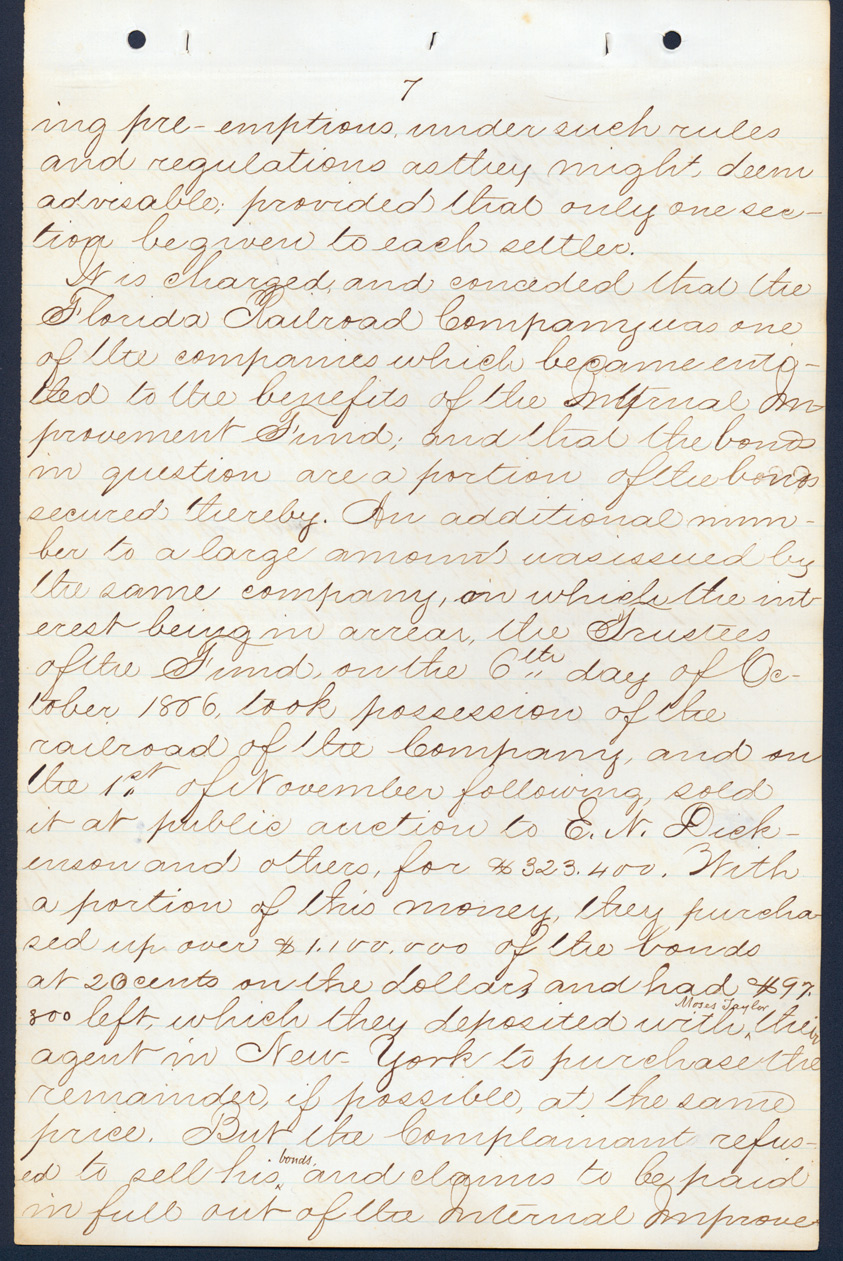 7
ing pre-emptions, under such rules
and regulations as they might deem
advisable; provided that only one sec-
tion be given to each settler.
It is charged, and conceded that the
Florida Railroad Company was one
of the companies which became enti-
tled to the benefits of the Internal Im
provement Fund; and that the bonds
in question are a portion of the bonds
secured thereby. An additional num-
ber to a large amount was issued by
the same company, on which, the int-
erest being in arrear, the Trustees
of the Fund, on the 6th day of Oc-
tober 1866, took possession of the
railroad of the Company, and on
the 1st of November following, sold
it at public auction to E. N. Dick-
enson and others, for $323.400. With
a portion of this money, they purcha
sed up over $1.100.000 of the bonds
at 20 cents on the dollar, and had $97.
800 left, which they deposited with Moses Taylor, their
agent in New-York to purchase the
remainder, if possible, at the same
price. But the Complainant refus-
ed to sell his bonds, and claims to be paid
in full out of the Internal Improve